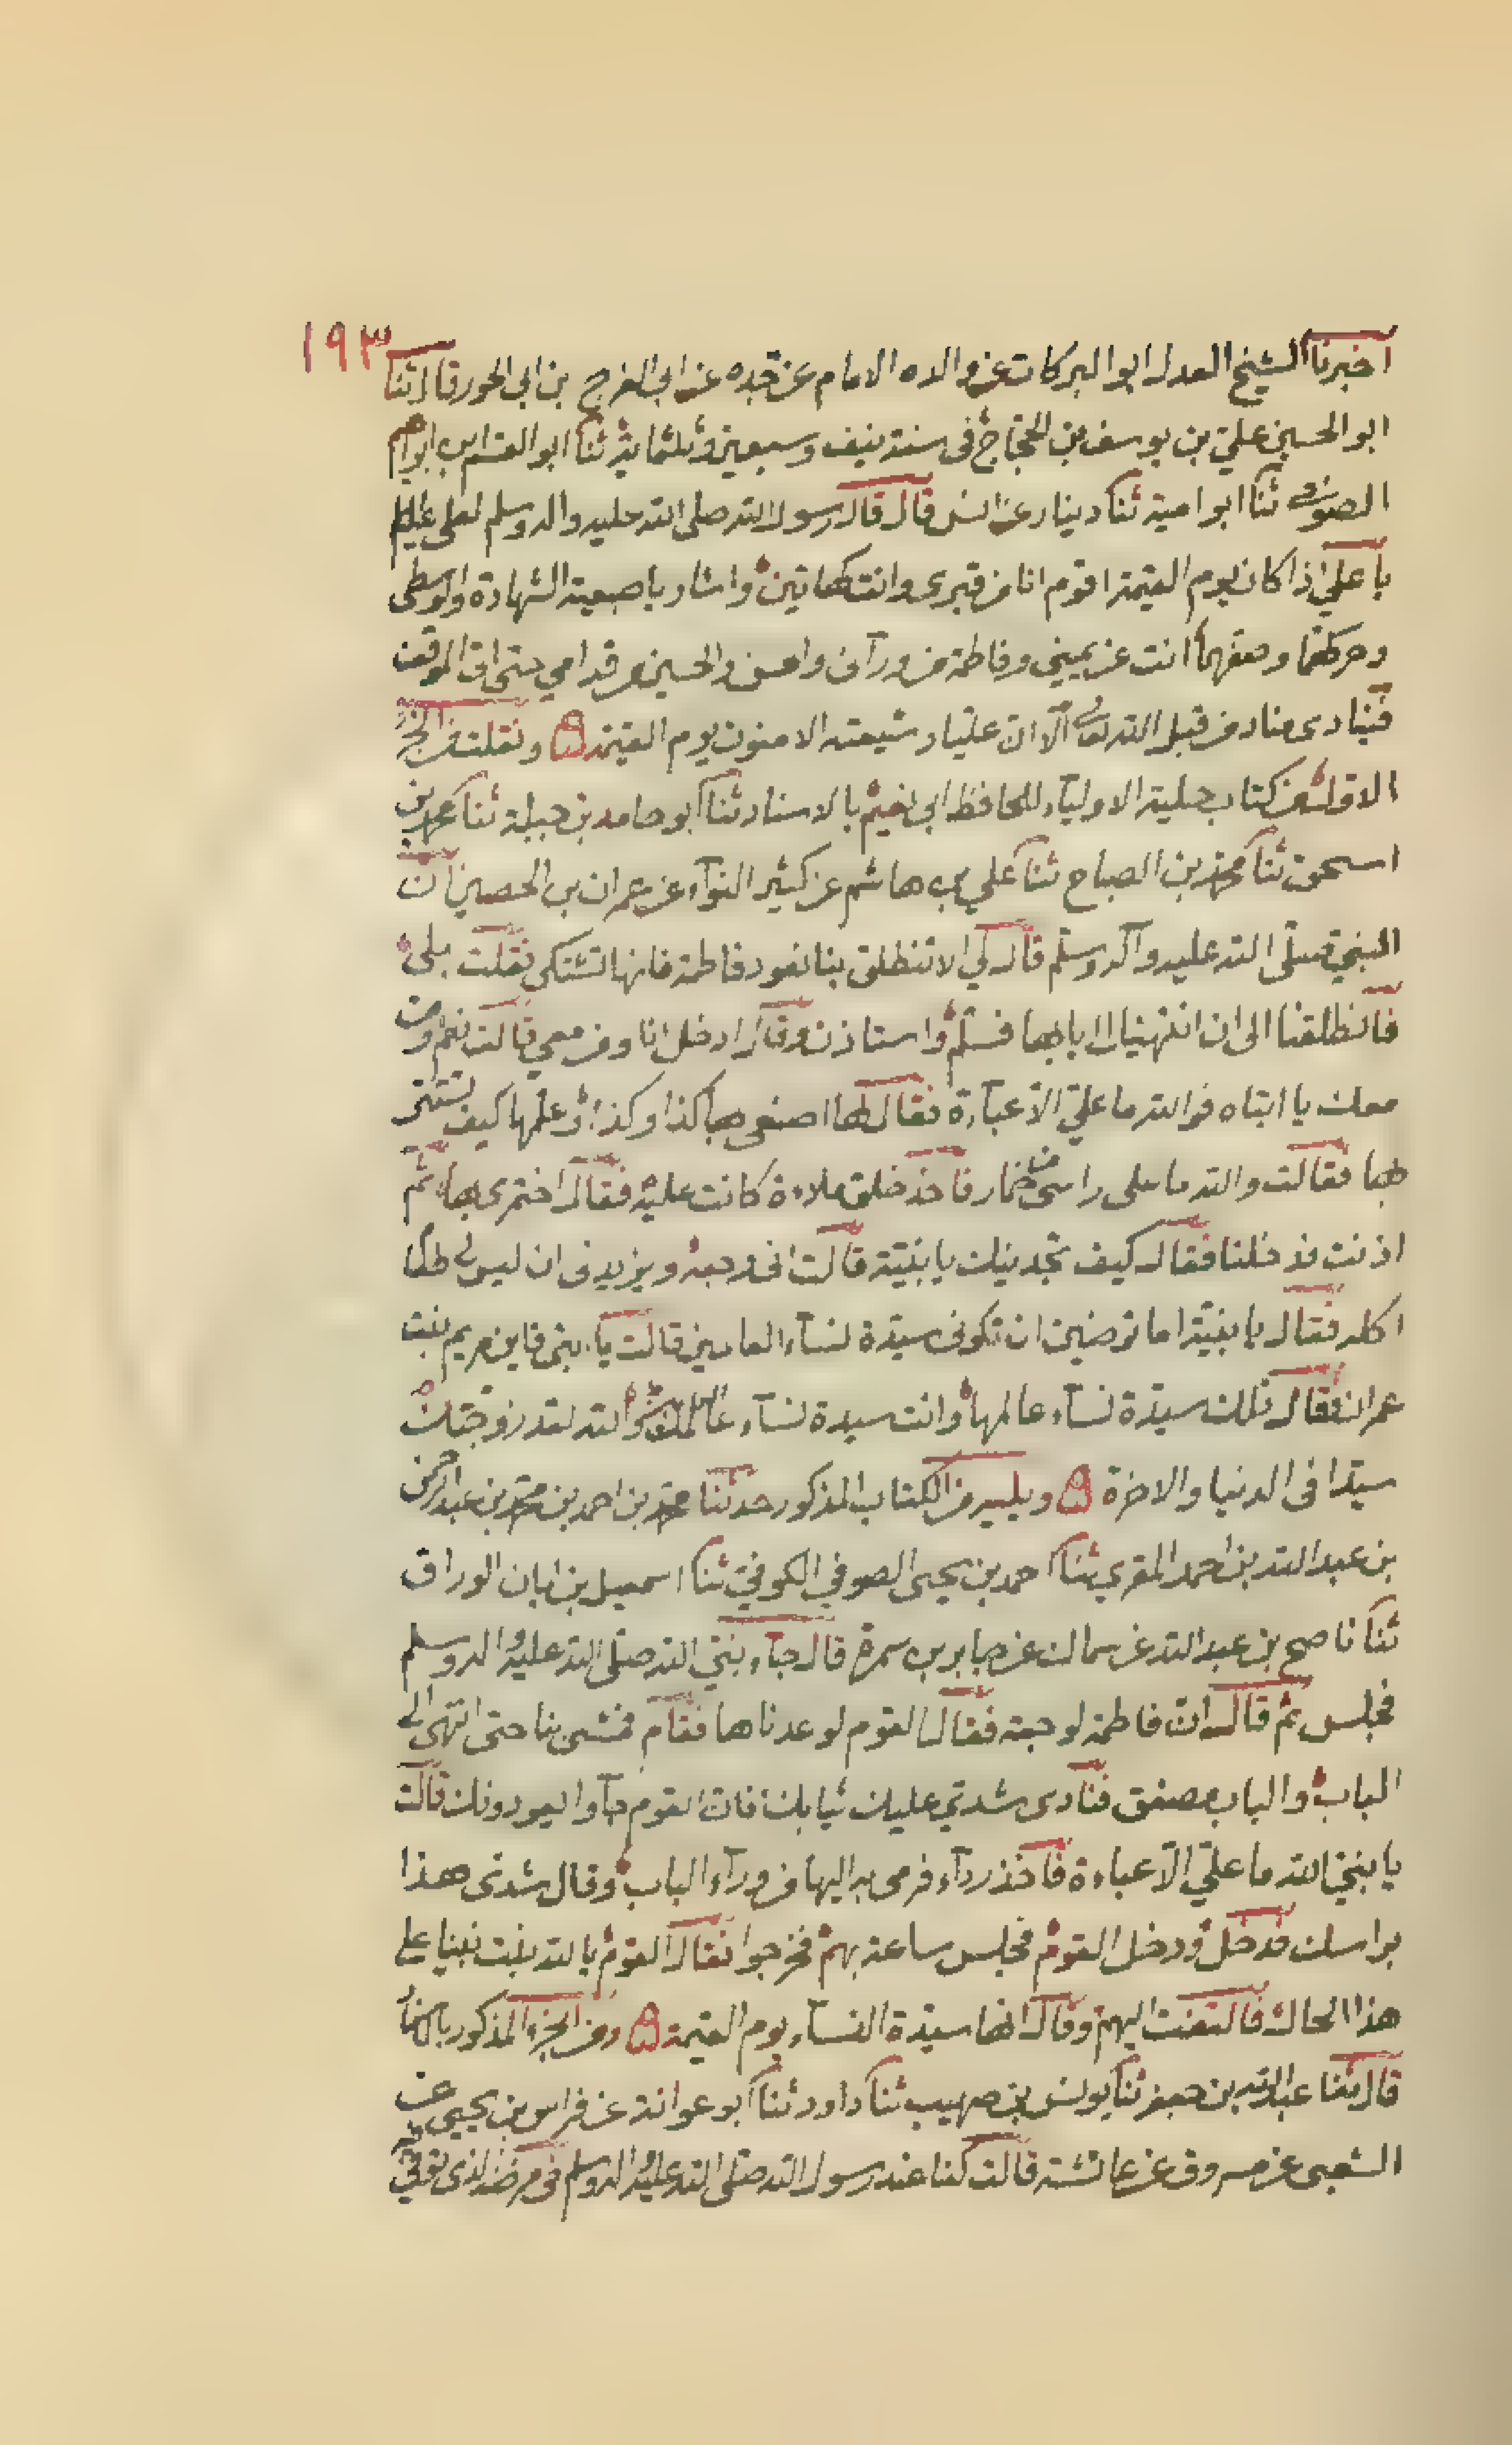 ١٩٣
اخبرنا الشيخ العدل ابو البركات عن والده الامام عن جده عن ابي الفرج بن ابي الحور قال ثنا
ابو الحسين علي بن يوسف بن الحجاج في سنة نيف وسبعين وثلثماية ثنا ابو القسم بن ابراهيم
الصوفي ثنا ابو امية ثنا دينار عن انس قال قال رسول الله صلى الله عليه واله وسلم لعلي عليلم
يا علي اذا كان يوم القيمة اقوم انا من قبري وانت كهاتين واشار باصبعيه الشهادة والوسطى
وحركهما وصفهما انت عن يميني وفاطمة من ورآئي والحسن والحسين من قدامي حتى اتى الموقف
فينادى مناد من قبل الله تعالى الا ان عليا وشيعته الامنون يوم القيمة ونقلت من الجزء
الاول من كتاب حلية الاولياء للحافظ ابي نعيم بالاسناد ثنا ابو حامد بن جبلة ثنا محمد بن
اسحق ثنا محمد بن الصباح ثنا علي بن هاشم عن كثير النوآء عن عمران بن الحصين ان
النبي صلى الله عليه وآله وسلم قال لي الا تنطلق بنا نعود فاطمة فانها تشتكي فقلت بلى
فانطلقنا الى ان انتهينا الى بابها فسلم واستاذن وقال ادخل انا ومن معي قالت نعم ومن
معك يا ابتاه فوالله ما علي الا عبآءة فقال لها اصنعي بها كذا وكذا وعلمها كيف تستتر
بها فقالت والله ما على راسي من خمار فاخذ خلق ملاءة كانت عليه فقال اختمري بها ثم
اذنت فدخلنا فقال كيف تجدينك يا بنية قالت اني وجعة ويزيدني ان ليس لي طعام
اكله فقال يا بنية اما ترضين ان تكوني سيدة نسآء العالمين قالت يا ابتي فاين مريم بنت
عمران فقال تلك سيدة نسآء عالمها وانت سيدة نسآء عالمك والله لقد زوجتك
سيدا في الدنيا والاخرة ويليه من الكتاب المذكور حدثنا محمد بن احمد بن محمد بن عبد الرحمن
بن عبد الله بن احمد المقري ثنا احمد بن يحيى الصوفي الكوفي ثنا اسمعيل بن ابان الوراق
ثنا ناصح بن عبد الله عن سماك عن جابر بن سمرة قال جآء نبي الله صلى الله عليه واله وسلم
فجلس ثم قال ان فاطمة لوجعة فقال القوم لو عدناها فقام فمشى بنا حتى انتهى الى
الباب والباب مصفق فنادى شدي عليك ثيابك فان القوم جآوا يعودونك قالت
يا نبي الله ما علي الا عباءة فاخذ ردآء فرمى به اليها من ورآء الباب وقال شدي هذا
براسك فدخل ودخل القوم فجلس ساعة بهم فخرجوا فقال القوم يالله بنت نبينا على
هذا الحال فالتفت اليهم وقال انها سيدة النسآء يوم القيمة ومن الجزء المذكور بالاسناد
قال ثنا عبد الله بن جعفر ثنا يونس بن صهيب ثنا داود ثنا ابو عوانة عن فراس بن يحيى عن
الشعبي عن مسروق عن عائشة قالت كنا عند رسول الله صلى الله عليه واله وسلم في مرضه الذي توفي فيه